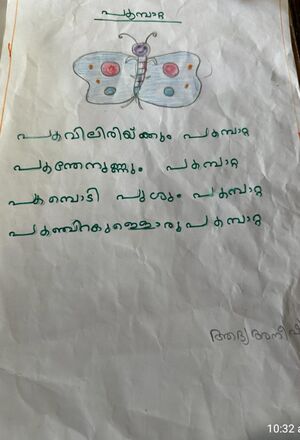 പൂമ്പാറ്റ
പൂവിലിരിയ്ക്കും പൂമ്പാറ്റ
പൂന്തേനുണ്ണും പൂമ്പാറ്റ
പൂമ്പൊടി പൂശും പൂമ്പാറ്റ
പൂഞ്ചിറകുള്ളൊരു പൂമ്പാറ്റ
ആദ്യ
10:32